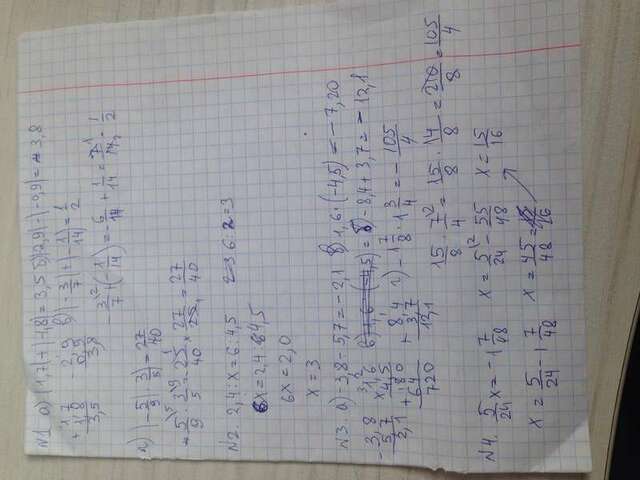 №1 а) |1,7|+|-1,8|=3,5 б)|-2,9|-|-0,9|=-3,8
+ 1,7 1,8 3,5 - 2,9 0,9 3,8 в)|-3/7|+|-1/14|=1/2
-3/7\2+(-1/14)=-6/14+1/14=7 1/14 2=1/2
г) |-5/9|·3/5|=27/40
=5\5/9·3\9/5=25 1/40×27/25 1=27/40
№2. 2,4:x=6:4,5 6:2=3
6x=2,4:4,5
6x=2,0
x=3
№3. а)-3,8-5,7=-2,1 в)1,6·(-4,5)=-7,20
- 3,8 5,7 2,1 × 1,6 4,5 + 80 64 720 б)-8,4+3,7=-12,1
+ 8,4 3,7 12,1 г)-1 7/8·1 3/4=-105/4
15/8·7\2/4=15/8·14/8=210/8=105/4
№4. 5/24x=-1 7/48 x=5\2/24-55/48 x=15/16
x=5/24-1 7/48 x=45/48=15/16